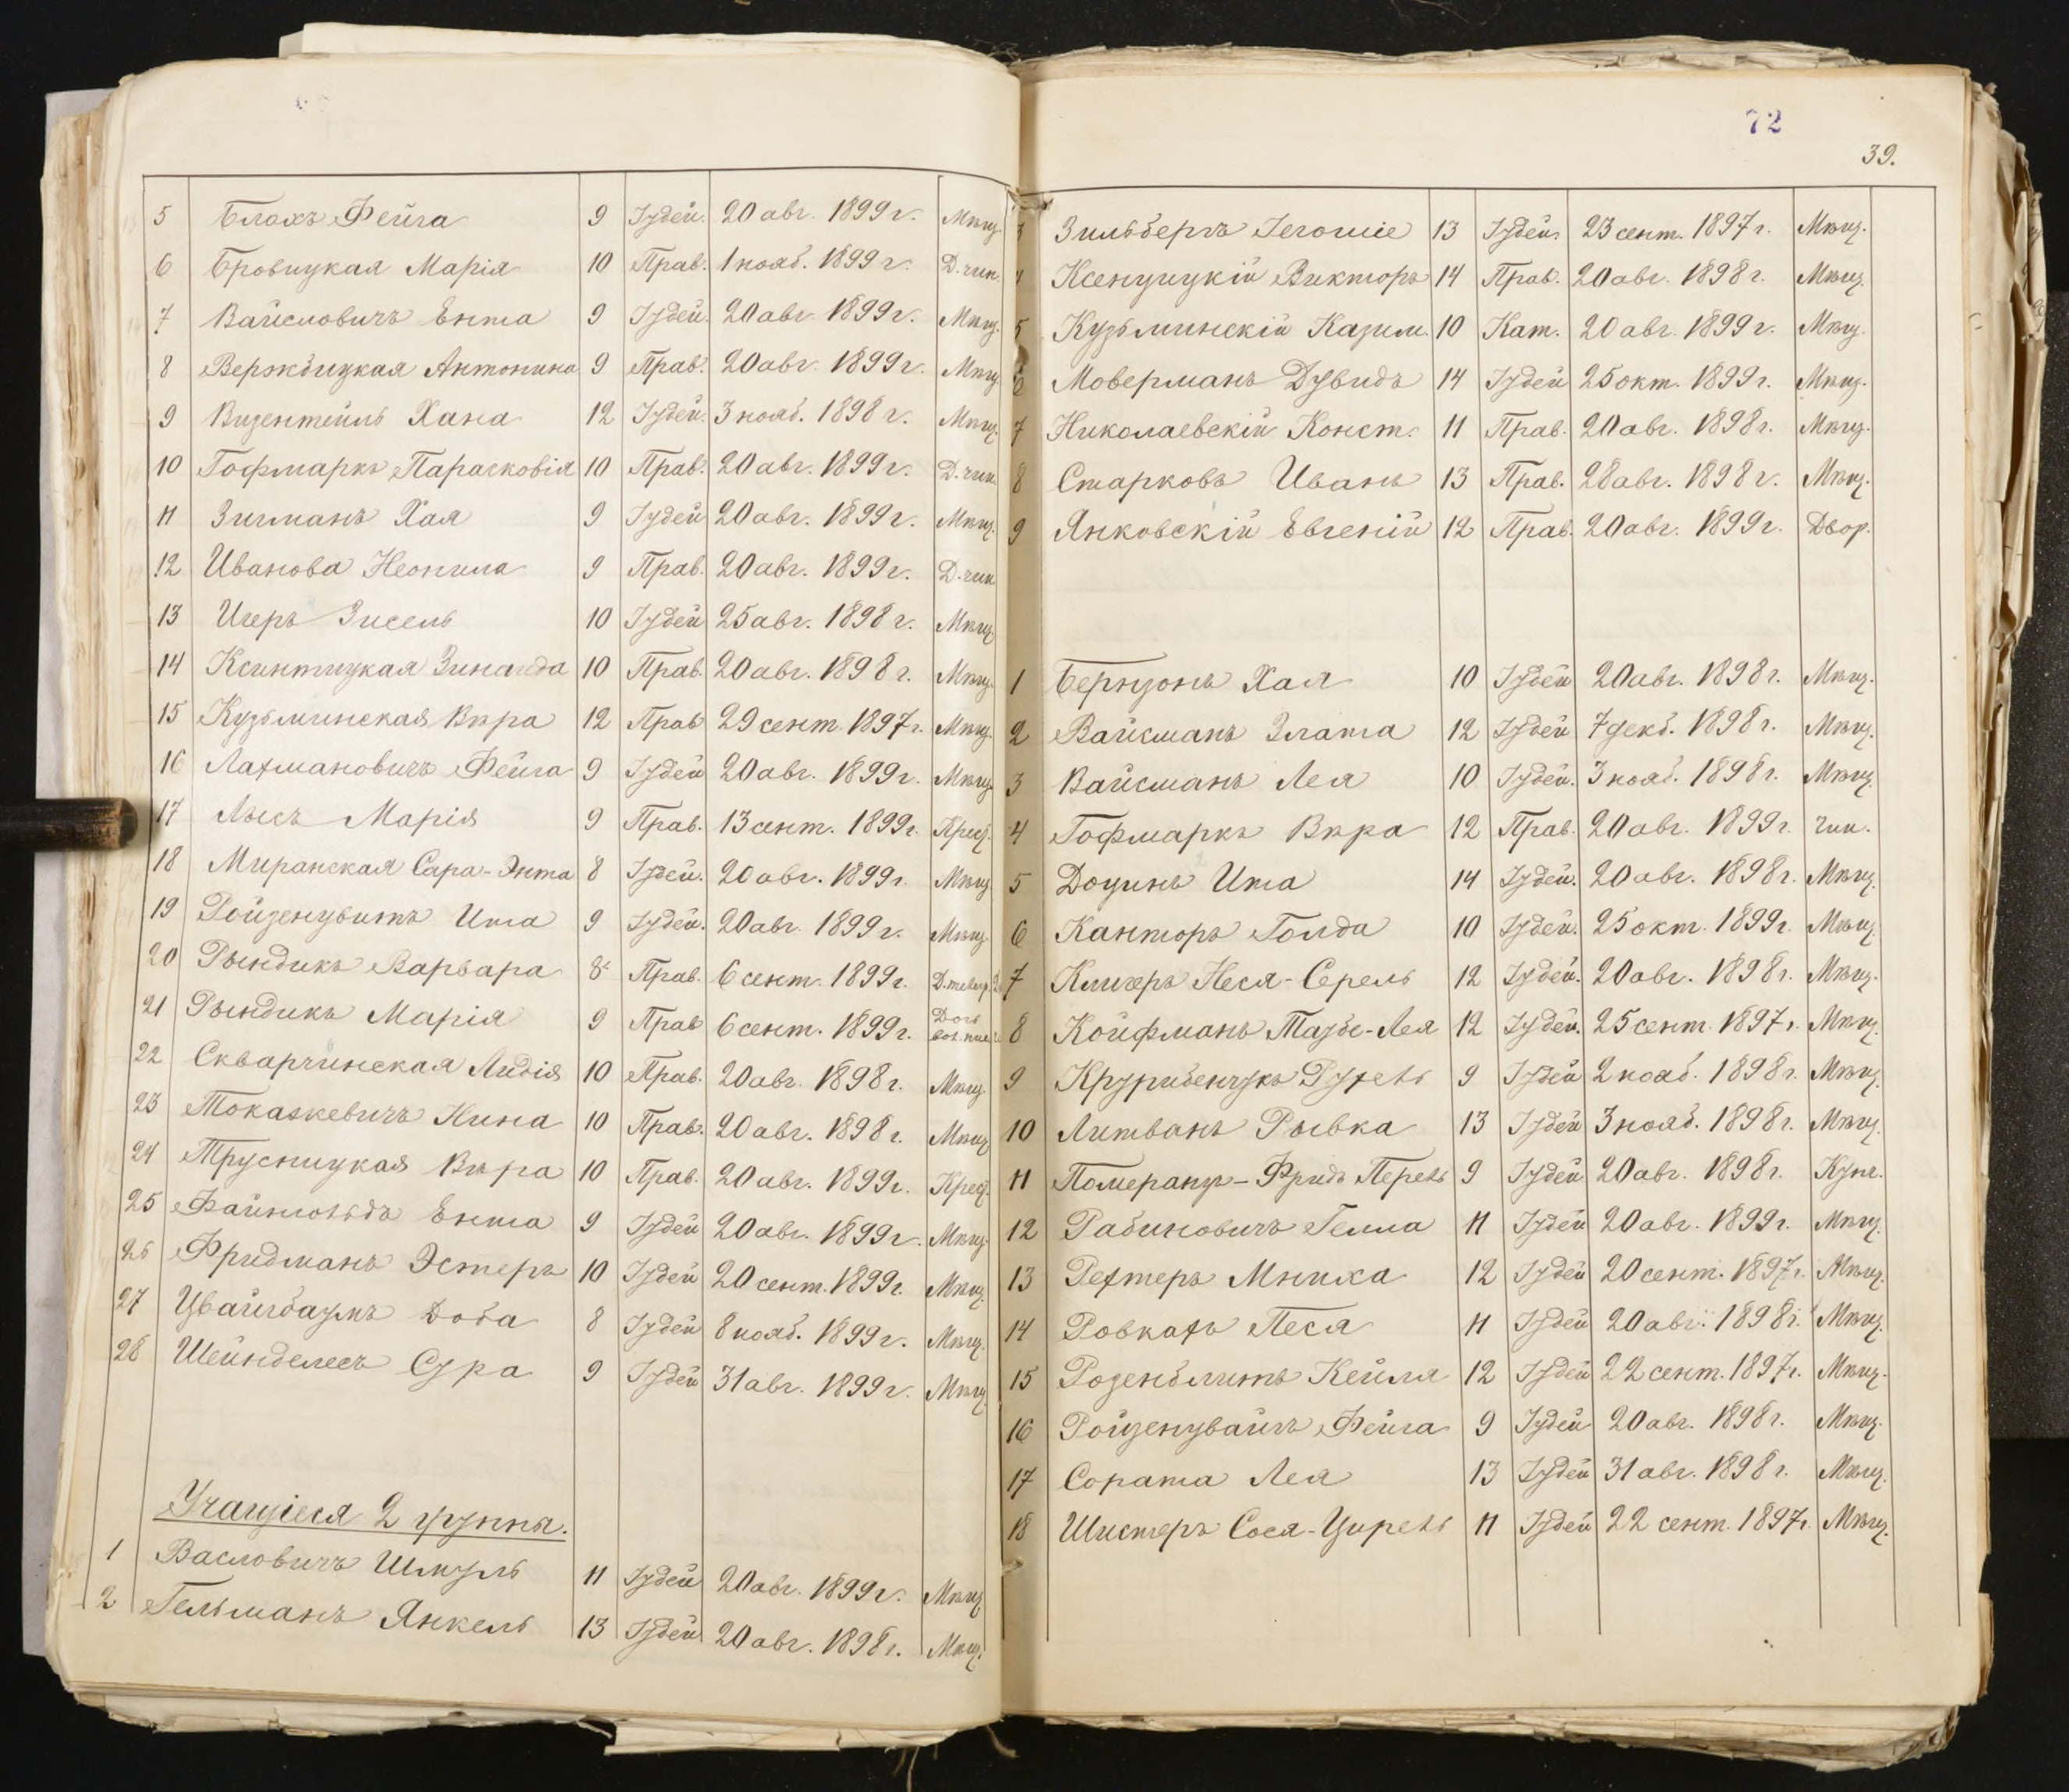 5 Блохъ Фейга 9 Іудей. 20 авг. 1899 г. Мѣщ.
6 Бровицкая Марія 10 Прав. 1 нояб. 1899 г. Д. чин.
7 Вайсловичъ Ента 9 Іудей. 20 авг. 1899 г. Мѣщ.
8 Вержбицкая Антонина 9 Прав. 20 авг. 1899 г. Мѣщ.
9 Визентейль Хана 12 Іудей. 3 нояб. 1898 г. Мѣщ.
10 Гофмаркъ Парасковія 10 Прав. 20 авг. 1899 г. Д. чин.
11 Зигманъ Хая 9 Іудей 20 авг. 1899 г. Мѣщ.
12 Иванова Неонила 9 Прав. 20 авг. 1899 г. Д. чин
13 Игеръ Зисель 10 Іудей 25 авг. 1898 г. Мѣщ.
14 Ксинтицкая Зинаида 10 Прав. 20 авг. 1898 г. Мѣщ.
15 Кузьминская Вѣра 12 Прав 29 сент. 1897 г. Мѣщ.
16 Лахмановичъ Фейга 9 Іудей 20 авг. 1899 г. Мѣщ.
17 Лысъ Марія 9 Прав. 13 сент. 1899 г. Крест.
18 Миранская Сара-Энта 8 Іудей. 20 авг. 1899 г. Мѣщ.
19 Ройзенцвитъ Ита 9 Іудей. 20 авг. 1899 г. Мѣщ.
20 Рындикъ Варвара 8 Прав. 6 сент. 1899 г.
21 Рындикъ Марія 9 Прав 6 сент. 1899 г. Дочь
22 Скварчинская Лидія 10 Прав. 20 авг. 1898 г. Мѣщ.
23 Токаżкевичъ Нина 10 Прав. 20 авг. 1898 г. Мѣщ
24 Трусницкая Вѣра 10 Прав. 20 авг. 1899 г. Крест.
25 Файнгольдъ Ента 9 Іудей 20 авг. 1899 г. Мѣщ.
26 Фридманъ Эстеръ 10 Іудей 20 сент. 1899 г. Мѣщ.
27 Цвайгбаумъ Доба 8 Іудей 8 нояб. 1899 г. Мѣщ.
28 Шейнделесъ Сура 9 Іудей 31 авг. 1899 г. Мѣщ.
Учащіеся 2 группы.
1 Васловичъ Шмуль 11 Іудей 20 авг. 1899 г. Мѣщ
2 Гельманъ Янкель 13 Іудей 20 авг. 1898 г. Мѣщ.
72
39.
3 Зильбергъ Іегошіе 13 Іудей. 23 сент. 1897 г. Мѣщ.
4 Ксенцицкій Викторъ 14 Прав. 20 авг. 1898 г. Мѣщ.
5 Кузьминскій Казим. 10 Кат. 20 авг. 1899 г. Мѣщ.
6 Моверманъ Дувидъ 14 Іудей 25 окт. 1899 г. Мѣщ.
7 Николаевскій Конст. 11 Прав. 20 авг. 1898 г. Мѣщ.
8 Старковъ Иванъ 13 Прав. 28 авг. 1898 г. Мѣщ.
9 Янковскій Евгеній 12 Прав. 20 авг. 1899 г. Двор.
1 Бернзонъ Хая 10 Іудей 20 авг. 1898 г. Мѣщ.
2 Вайсманъ Злата 12 Іудей 7 декб. 1898 г. Мѣщ.
3 Вайсманъ Лея 10 Іудей. 3 нояб. 1898 г. Мѣщ.
4 Гофмаркъ Вѣра 12 Прав. 20 авг. 1899 г. Чин.
5 Доцинъ Ита 14 Іудей. 20 авг. 1898 г. Мѣщ.
6 Канторъ Голда 10 Іудей. 25 окт. 1899 г. Мѣщ
7 Клигеръ Неся-Серель 12 Іудей. 20 авг. 1898 г. Мѣщ.
8 Койфманъ Таубе-Лея 12 Іудей. 25 сент. 1897 г. Мѣщ.
9 Рухель 9 Іудей 2 нояб. 1898 г. Мѣщ.
10 Литванъ Рывка 13 Іудей 3 нояб. 1898 г. Мѣщ.
11 Померанц-Фридъ Перель 9 Іудей 20 авг. 1898 г. Купч.
12 Рабиновичъ Гелла 11 Іудей 20 авг. 1899 г. Мѣщ.
13 Рехтеръ Мнихa 12 Іудей 20 сент. 1897 г. Мѣщ.
14 Ровкахъ Песя 11 Іудей 20 авг. 1898 г. Мѣщ.
15 Розенблитъ Кейля 12 Іудей 22 сент. 1897 г. Мѣщ.
16 Ройзенцвайгъ Фейга 9 Іудей 20 авг. 1898 г. Мѣщ.
17 Сората Лея 13 Іудей 31 авг. 1898 г. Мѣщ.
18 Шистеръ Сося-Цирель 11 Іудей 22 сент. 1897 г. Мѣщ.